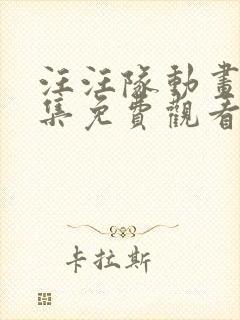 汪汪隊動畫
集免費觀看
卡拉斯